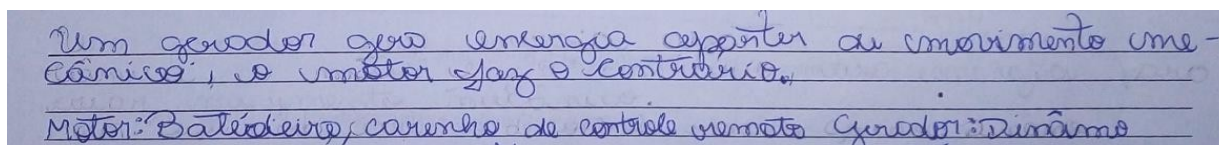 Um gerador gera energia aparter de movimento me-
cânico, o motor faz o contrário.
Motor: Batedeira, carenho de controle remoto Gerador: Dinâmo